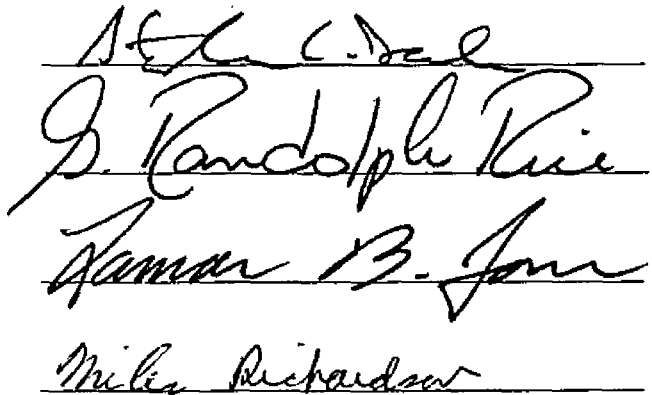 C.
G. Randolph Rice
Lamar B. Jones
Miles Richardson